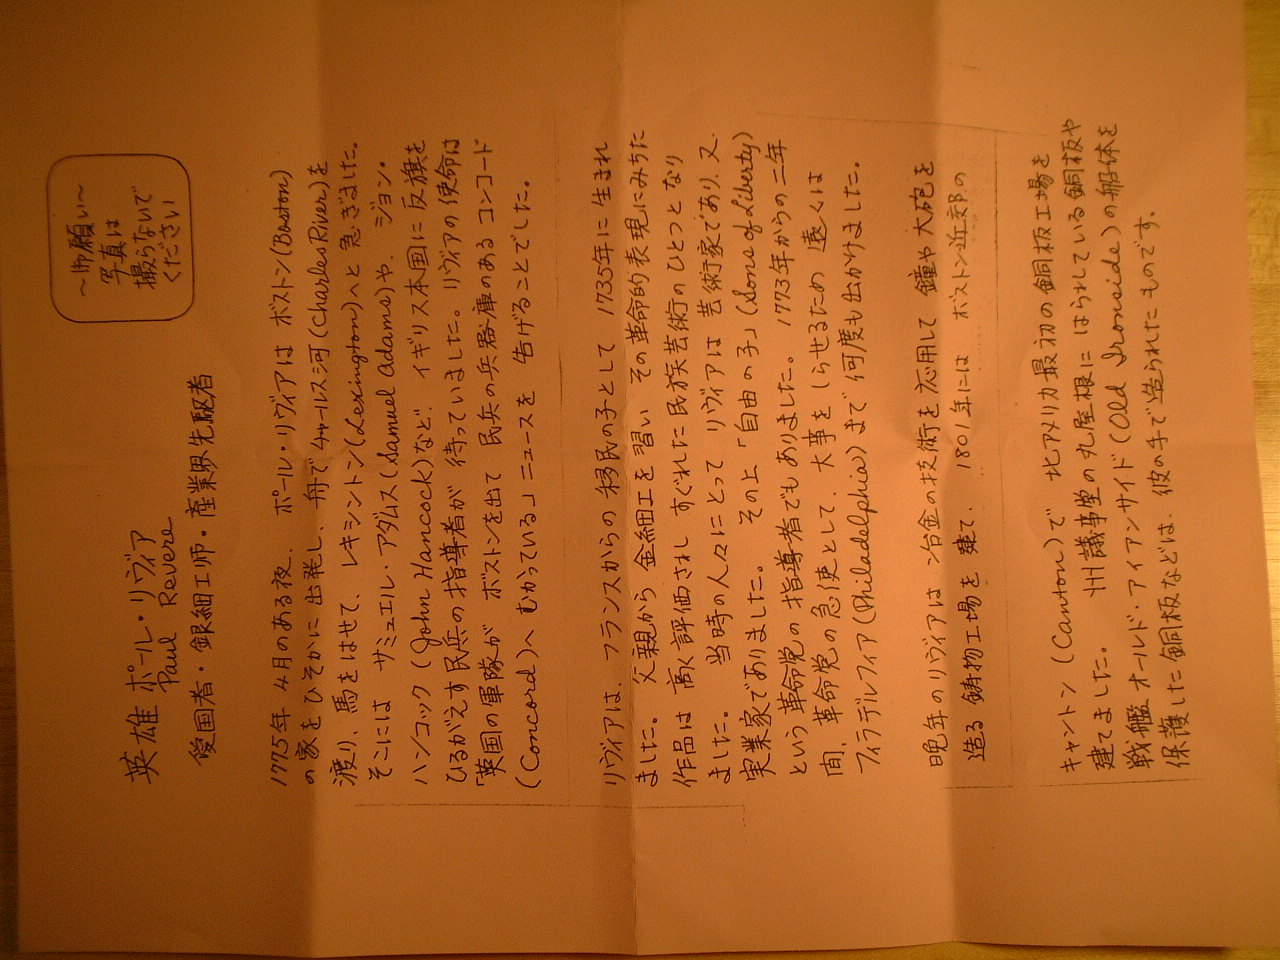 〜御願い〜
写真は
撮らないで
ください
英雄 ポール・リヴィア
Paul Revere
愛国者・銀細工師・産業界先駆者
1775年 4月のある夜、 ポール・リヴィアは ボストン(Boston)
の家を ひそかに 出発し、舟で チャールス河(Charles River)を
渡り、馬をはせて、レキシントン(Lexington)へと 急ぎました。
そこには サミュエル・アダムス(Samuel Adams)や、ジョン・
ハンコック(John Hancock)など、イギリス本国に 反旗を
ひるがえす民兵の指導者が 待っていました。リヴィアの使命は
「英国の軍隊が ボストンを出て 民兵の兵器庫のある コンコード
(Concord)へ むかっている」ニュースを 告げることでした。
リヴィアは、フランスからの 移民の子として 1735年に生まれ
ました。 父親から 金細工を 習い その革命的表現にみちた
作品は 高く評価され すぐれた民族芸術のひとつとなり
ました。 当時の人々にとって リヴィアは 芸術家であり、又、
実業家でありました。 その上「自由の子」(Sons of Liberty)
という 革命党の指導者でもありました。 1773年からの二年
間、革命党の急使として、大事を しらせるため 遠くは
フィラデルフィア(Philadelphia)まで 何度も 出かけました。
晩年のリヴィアは 冶金の技術を 応用して 鐘や 大砲を
造る 鋳物工場を 建て、 1801年には ボストン近郊の
キャントン(Canton)で 北アメリカ最初の銅板工場を
建てました。 州議事堂の丸屋根に はられている 銅板や
戦艦 オールド・アイアンサイド(Old Ironside)の船体を
保護した 銅板などは、彼の手で 造られたものです。